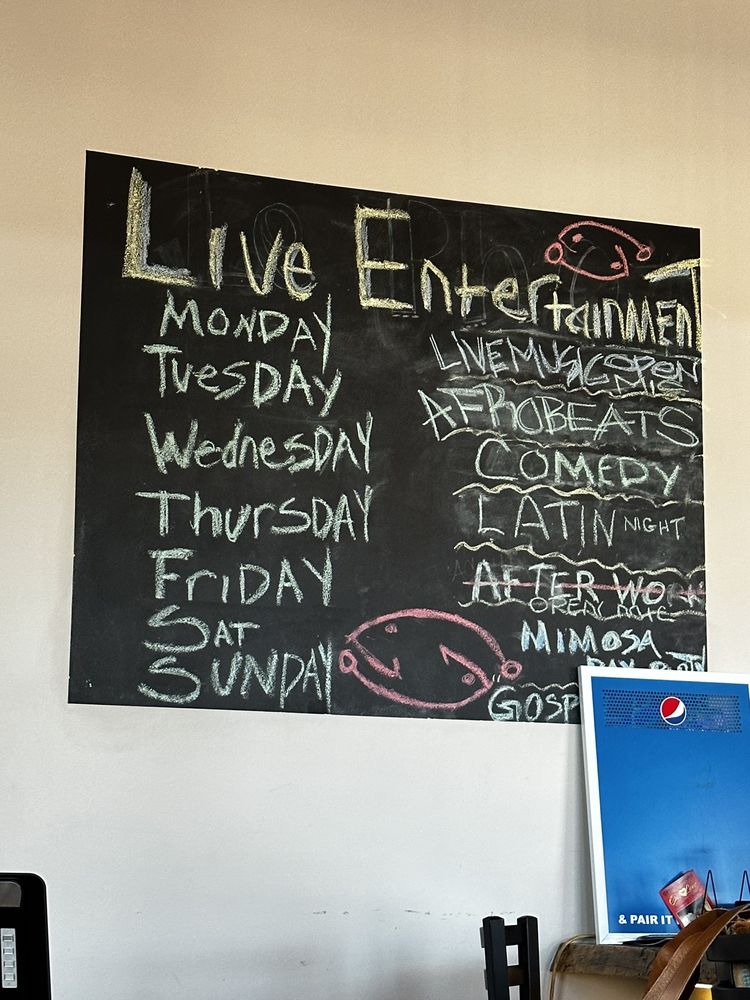 Live Entertainment
MONDAY LIVE MUSIC OPEN MIC
TUESDAY AFROBEATS
WednesDAY COMEDY
ThursDAY LATIN NIGHT
FriDAY AFTER WO
OPEN DATE
SAT MIMOSA
DAY
SUNDAY GOSP
& PAIR IT